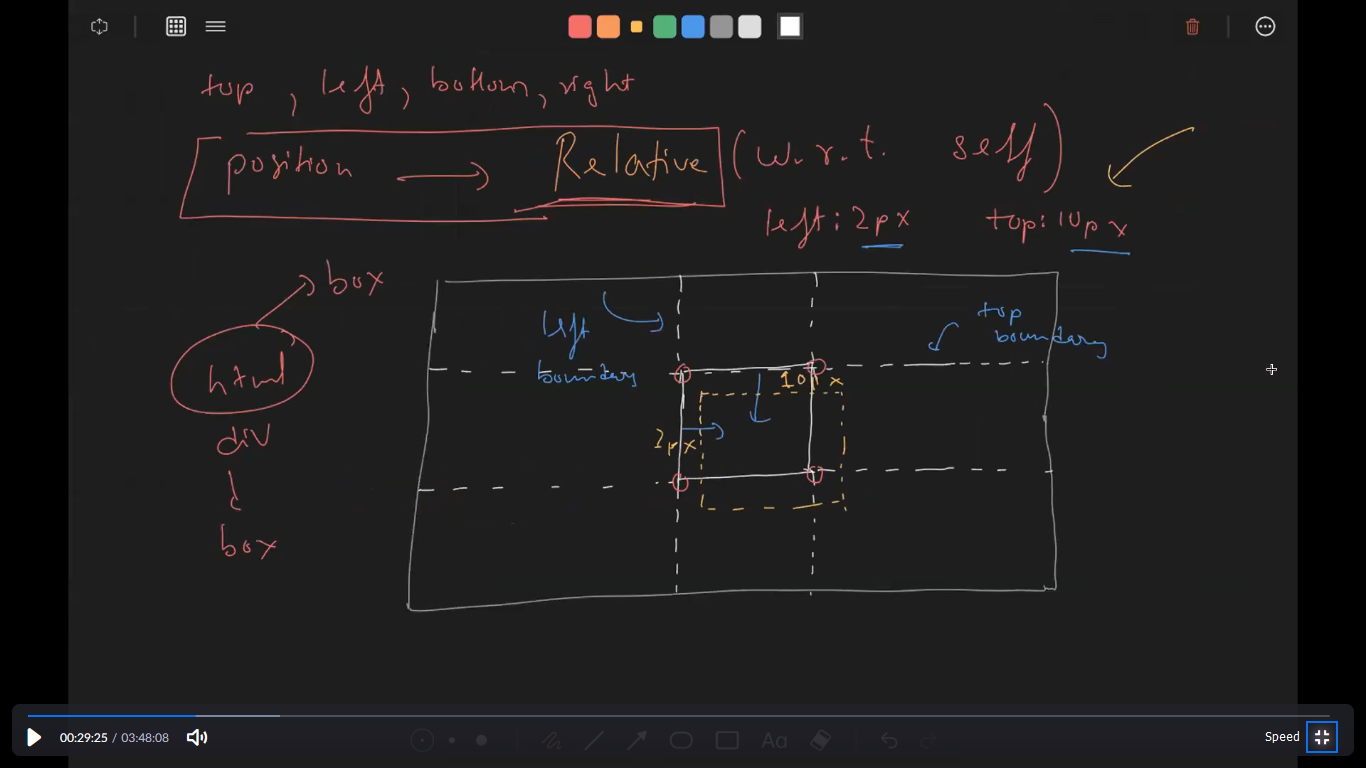 top, left, bottom, right
position → Relative (w.r.t. self)
left: 2px top: 10px
box
html
div
box
left
boundary
top
boundary
10px
2px
00:29:25 / 03:48:08
Speed
Aa